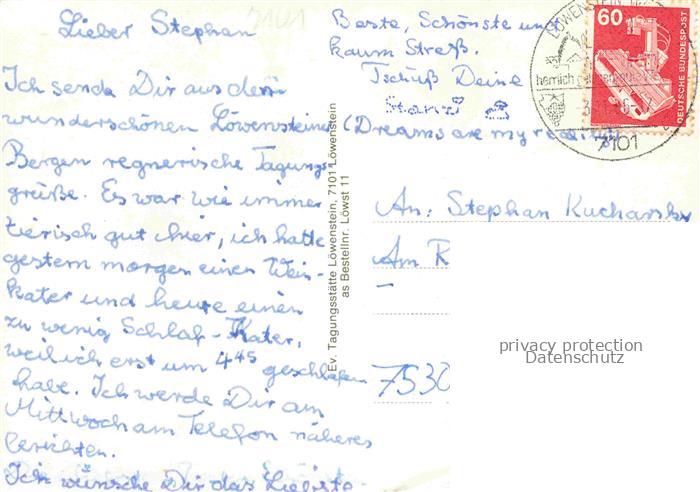 Lieber Stephan
Ich sende Dir aus dem
wunderschönen Löwensteiner
Bergen regnerische Tagungs-
grüße. Es war wie immer
tierisch gut hier, ich hatte
gestern morgen einen Wein-
kater und heute einen
zu wenig Schlaf-Kater,
weil ich erst um 4⁴⁵ geschlafen
habe. Ich werde Dir am
Mittwoch am Telefon näheres
berichten.
Ich wünsche Dir das Liebste
Beste, Schönste und
kaum Streß.
Tschüß Deine
(Dreams are my reality)
Ev. Tagungsstätte Löwenstein, 7101 Löwenstein
as Bestellnr. Löwst 11
An: Stephan
Am R
7530
60
DEUTSCHE BUNDESPOST
LÖWENSTEIN
7101
privacy protection
Datenschutz